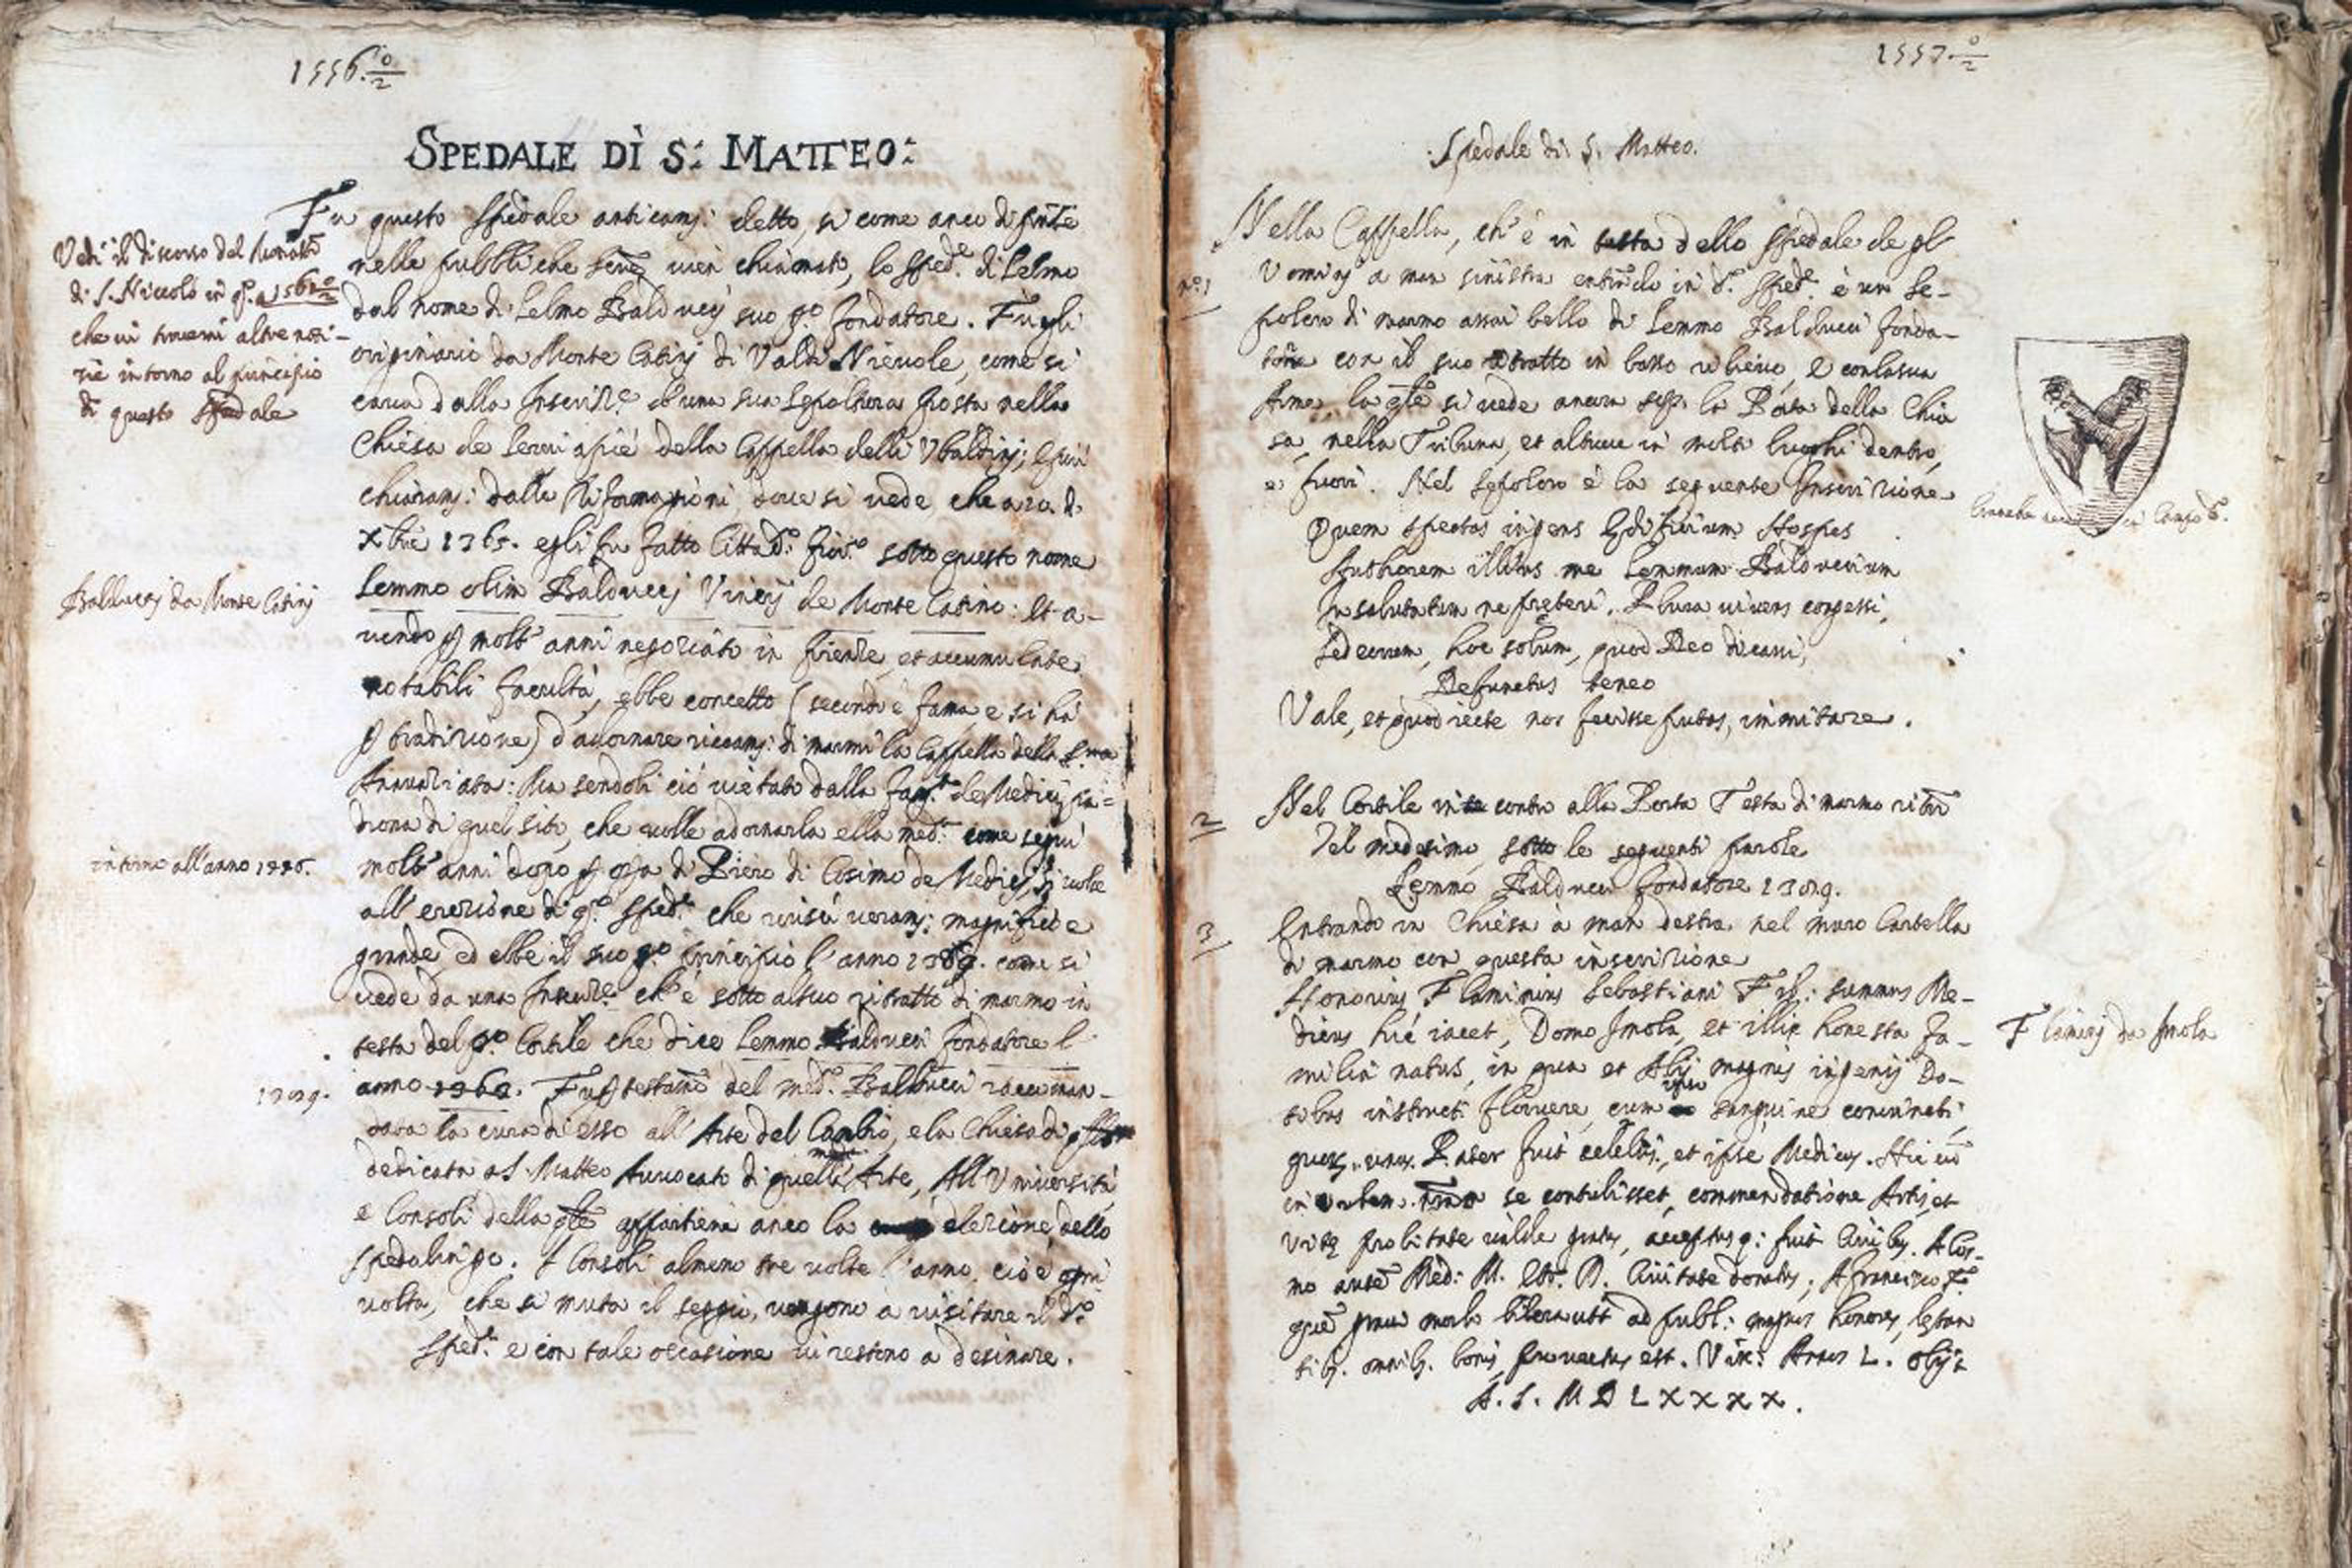 1556. 0/2
SPEDALE DÌ S: MATTEO:
Fu questo Spedale anticam: detto, si come anco di pnte
nelle pubbliche scre vien chiamato, lo Sped.e di Lelmo
dal nome di Lelmo Balducci suo p.o fondatore. Fu egli
originario da Monte Catini di Valdi Nievole, come si
cava dalla Inscriz.e d'una sua Sepoltura posta nella
Chiesa de Servi a pié della Cappella delli Ubaldini; e più
chiaram: dalle Riformazioni dove si vede, che a
Xbre 1365. egli fu fatto Cittad.o fior.o sotto questo nome
Lemmo olim Balducci de Monte Catino: Et a-
vendo p molti anni negoziato in firenze, et accumulate
notabili facultà, ebbe concetto (secondo è fama e si há
p tradizione) d'adornare riccam: di marmi la Cappella della S.ma
Annunziata: Ma sendoli ció vietato dalla fam.a de Medici pa=
drona di quel sito, che volle adornarla ella med.a come seguì
molti anni dopo p op.a di Piero di Cosimo de Medici, si volse
all' erezione di q.o Sped.e che riuscì veram: magnifico e
grande, ed ebbe il suo p.o principio l'anno 1389. come si
vede da una Inscriz.e ch' é sotto al suo ritratto di marmo in
testa del p.o Cortile che dice Lemmo Balducci fondatore l'
anno 1369. Fu p testam.o del med.o Balducci raccoman-
data la cura di esso all' Arte del Cambio, e la Chiesa
dedicata a S. Matteo Avvocato di quell' Arte, All Università
e Consoli della qle appartiene anco la elezione dello
Spedalingo. I Consoli almeno tre volte l'anno. cioé ogni
volta, che si muta il seggio, vengono a visitare il d.o
Sped.e e con tale occasione vi restono a desinare.
Vedi il discorso del Monast.o
di S. Niccoló in q.o a 1562 0/2
che vi troverai altre noti-
zie intorno al principio
di questo Spedale
Balducci da Monte Catini
intorno all'anno
1389.
1557. 0/2
Spedale di S. Matteo.
Nella Cappella, ch' é in testa dello Spedale de gl'
Uomini a man sinistra entrando in d.o Sped.e é un Se-
polcro di marmo assai bello di Lemmo Balducci fonda-
tore con il suo ritratto in basso rilievo, e con la sua
Arme, la qle si vede ancora sop. la Porta della Chie
sa, nella Tribuna, et altrove in molti luoghi dentro,
e fuori. Nel Sepolcro é la seguente Inscrizione
Quem spectas ingens Edificium Hospes
Authorem illius me Lemmum Balduccium
Insalutatum ne preteri. Plura vivens congessi,
Sed eorum, hoc solum, quod Deo dicavi,
Defunctus teneo
Vale, et quod recte nos fecisse putas, immitare.
Nel Cortile in contro alla Porta Testa di marmo ritr.o
del medesimo, sotto le seguenti parole
Lemmo Balducci fondatore 1389.
Entrando in Chiesa a man destra nel muro Cartella
di marmo con questa inscrizione
Honorius Flaminius Sebastiani Fil: summus Me-
dicus hic iacet, Domo Imola, et illic honesta fa-
milia natus, in qua et Alij magnis ingenij Do-
tibus instructi floruere, cum sanguine coniuncti,
quor. unus Pater fuit celebris, et ipse Medicus. Hic cū
in Urbem se contulisset, commendatione Artis, et
vitę probitate valde gratus, acceptusq: fuit Civibus. A Cos-
mo autē Med: M. Etr. D. Civitate donatus; A Francisco
quē gravi morbo liberavit ad publ: magnos honores, letan
tib. omnib. bonis provectus est. Vix: Annos L. obijt
A. S. MDLXXXX.
n.o 1
2
3
in Campo
Flamini da Imola